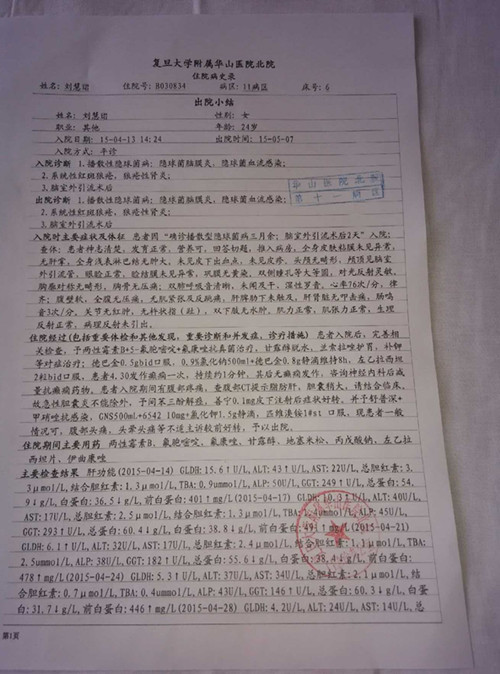 复旦大学附属华山医院北院
住院病史录
姓名: 刘慧珺 住院号: B030834 病区: 11病区 床号: 6
出院小结
姓名: 刘慧珺 性别: 女
职业: 其他 年龄: 24岁
入院日期: 15-04-13 14:24 出院日期: 15-05-07
入院方式: 平诊
入院诊断 1.播散性隐球菌病: 隐球菌脑膜炎, 隐球菌血流感染;
2.系统性红斑狼疮, 狼疮性肾炎;
3.脑室外引流术后
出院诊断 1.播散性隐球菌病: 隐球菌脑膜炎, 隐球菌血流感染;
2.系统性红斑狼疮, 狼疮性肾炎;
3.脑室外引流术后
华山医院北院
第十一病区
入院时主要症状及体征 患者因“确诊播散型隐球菌病三月余; 脑室外引流术后2天”入院;
查体: 患者神志清楚, 发育正常, 营养可, 回答切题, 推入病房, 全身皮肤粘膜未见异常,
无肝掌, 全身浅表淋巴结无肿大, 未见皮下出血点, 未见皮疹, 头颅无畸形, 颅顶见脑室
外引流管, 眼睑正常, 睑结膜未见异常, 巩膜无黄染, 双侧瞳孔等大等圆, 对光反射灵敏,
胸廓对称无畸形, 胸骨无压痛; 双肺呼吸音清晰, 未闻及干、湿性罗音。心率76次/分, 律
齐; 腹壁软, 全腹无压痛, 无肌紧张及反跳痛, 肝脾肋下未触及, 肝肾脏无叩击痛, 肠鸣
音3次/分。关节无红肿, 无杵状指(趾), 双下肢无水肿, 肌力正常, 肌张力正常, 生理
反射正常, 病理反射未引出。
住院经过(包括重要体检和其他发现, 重要诊断和并发症, 诊疗措施) 患者入院后, 完善相
关检查, 予两性霉素B+5-氟胞嘧啶+氟康唑抗真菌治疗, 甘露醇脱水, 兰索拉唑护胃, 补钾
等对症治疗; 德巴金0.5gbid口服、0.9%氯化钠500ml+德巴金0.8g静滴维持8h、左乙拉西坦
2#1bid口服, 患者4.30发作癫痫一次, 持续约1分钟, 其后无癫痫发作, 咨询神经内科后减
量抗癫痫药物。患者入院期间有腹部疼痛, 查腹部CT提示脂肪肝, 胆囊稍大, 请结合临床,
故急性胆囊炎不能除外, 予间苯三酚解痉, 善宁0.1mg皮下注射后症状好转, 并予舒普深+
甲硝唑抗感染, GNS500ml+6542 10mg+氯化钾1.5g静滴, 匹维溴铵1#st 口服, 现患者一般
情况可, 腹部头痛, 头晕头痛等不适主诉较前好转, 予以出院。
住院期间主要用药 两性霉素B、氟胞嘧啶、氟康唑、甘露醇、地塞米松、丙戊酸钠、左乙拉
西坦片、伊曲康唑
主要检查结果 肝功能(2015-04-14) GLDH:15.6↑U/L, ALT: 43↑U/L, AST: 22U/L, 总胆红素: 3.
3μmol/L, 结合胆红素: 1.3μmol/L, TBA: 0.9μmol/L, ALP: 50U/L, GGT: 249↑U/L, 总蛋白: 54.
9↓g/L, 白蛋白: 36.5↓g/L, 前白蛋白: 401↑mg/L(2015-04-17) GLDH: 10.3↑U/L, ALT: 40U/L,
AST: 17U/L, 总胆红素: 2.5μmol/L, 结合胆红素: 1.3μmol/L, TBA: 1.4μmol/L, ALP: 45U/L,
GGT: 293↑U/L, 总蛋白: 60.4↓g/L, 白蛋白: 38.8↓g/L, 前白蛋白: 491↑mg/L(2015-04-21)
GLDH: 6.1↑U/L, ALT: 32U/L, AST: 17U/L, 总胆红素: 2.4μmol/L, 结合胆红素: 1.1μmol/L, TBA:
2.5μmol/L, ALP: 38U/L, GGT: 182↑U/L, 总蛋白: 55.6↓g/L, 白蛋白: 38.4↓g/L, 前白蛋白:
478↑mg/L(2015-04-24) GLDH: 5.3↑U/L, ALT: 37U/L, AST: 34U/L, 总胆红素: 2.1μmol/L, 结
合胆红素: 0.7μmol/L, TBA: 0.4μmol/L, ALP: 43U/L, GGT: 146↑U/L, 总蛋白: 60.3↓g/L, 白蛋
白: 31.7↓g/L, 前白蛋白: 446↑mg/L(2015-04-28) GLDH: 4.2U/L, ALT: 24U/L, AST: 14U/L, 总
第1页